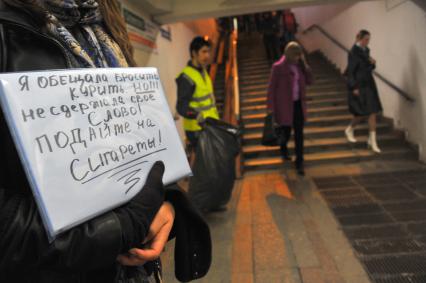 Я обещала бросить
курить, но!!!
не сдержала своё
слово!
Подайте на
Сигареты!